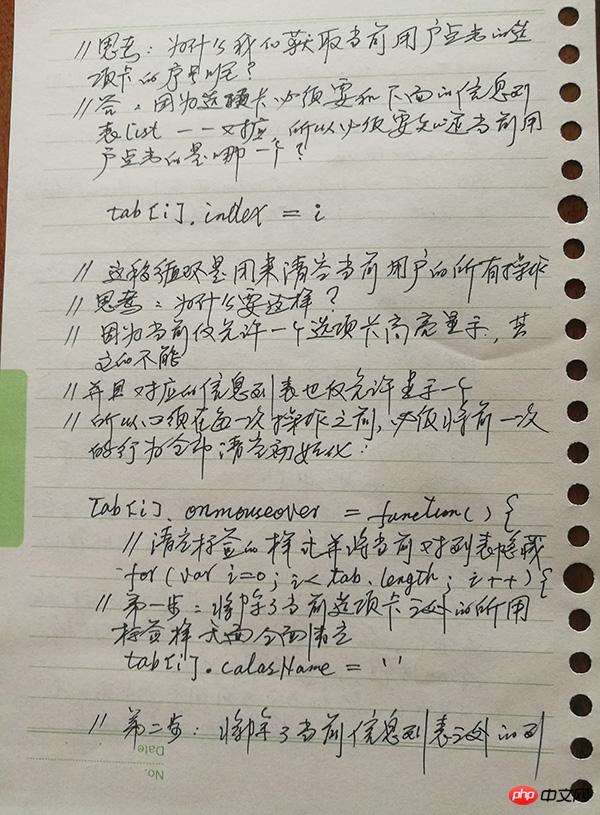 //思考：为什么我们获取当前用户点击的选
项卡的序号呢？
//答：因为选项卡必须要和下面的信息列
表list 一一对应，所以必须要知道当前用
户点击的是哪一个？
tab[i].index = i
// 这段循环是用来清空当前用户的所有操作
//思考：为什么要这样？
// 因为当前仅允许一个选项卡高亮显示，其
它的不能
//并且对应的信息列表也仅允许显示一个
//所以必须在每一次操作之前，必须将前一次
的行为全部清空初始化：
tab[i].onmouseover = function() {
//清空标签的样式并将当前对列表隐藏
for(var i=0; i<tab.length; i++) {
//第一步：将除了当前选项卡之外的所用
标签样式面全面清空
tab[i].calasName = ''
//第二步：将除了当前信息列表之外的列
No.
Date
php 中文网